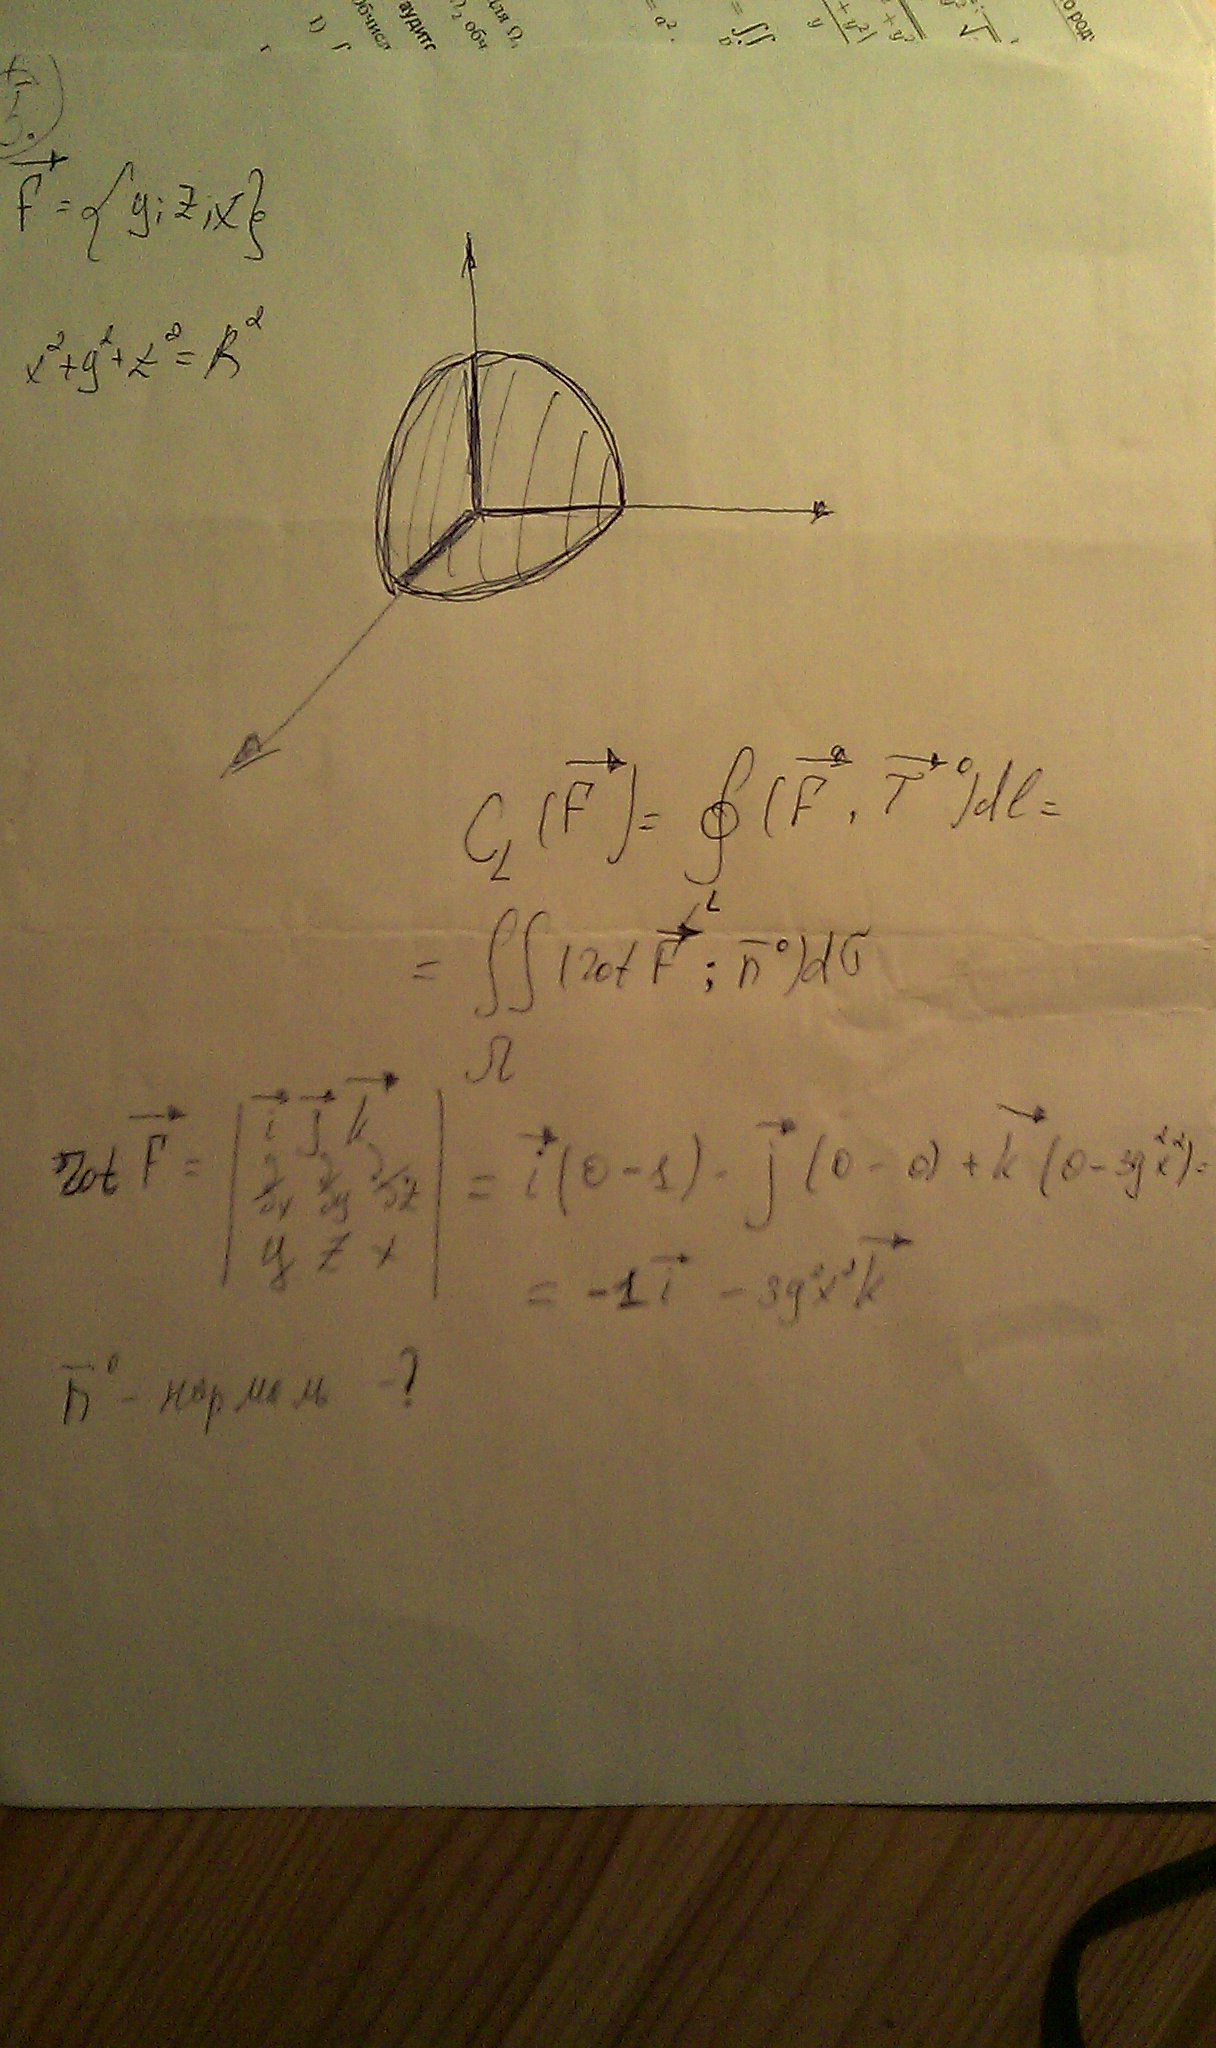 F = { y; z; x}
x² + y² + z² = R²
C_L (F) = ∮_L (F, τ⁰) dl =
= ∬_Ω (rot F; n⁰) dσ
rot F = | i j k
∂/∂x ∂/∂y ∂/∂z
y z x | = i (0 - 1) - j (0 - 0) + k (0 - 3y²x²) =
= -1 i - 3y²x² k
n⁰ - нормаль - ?